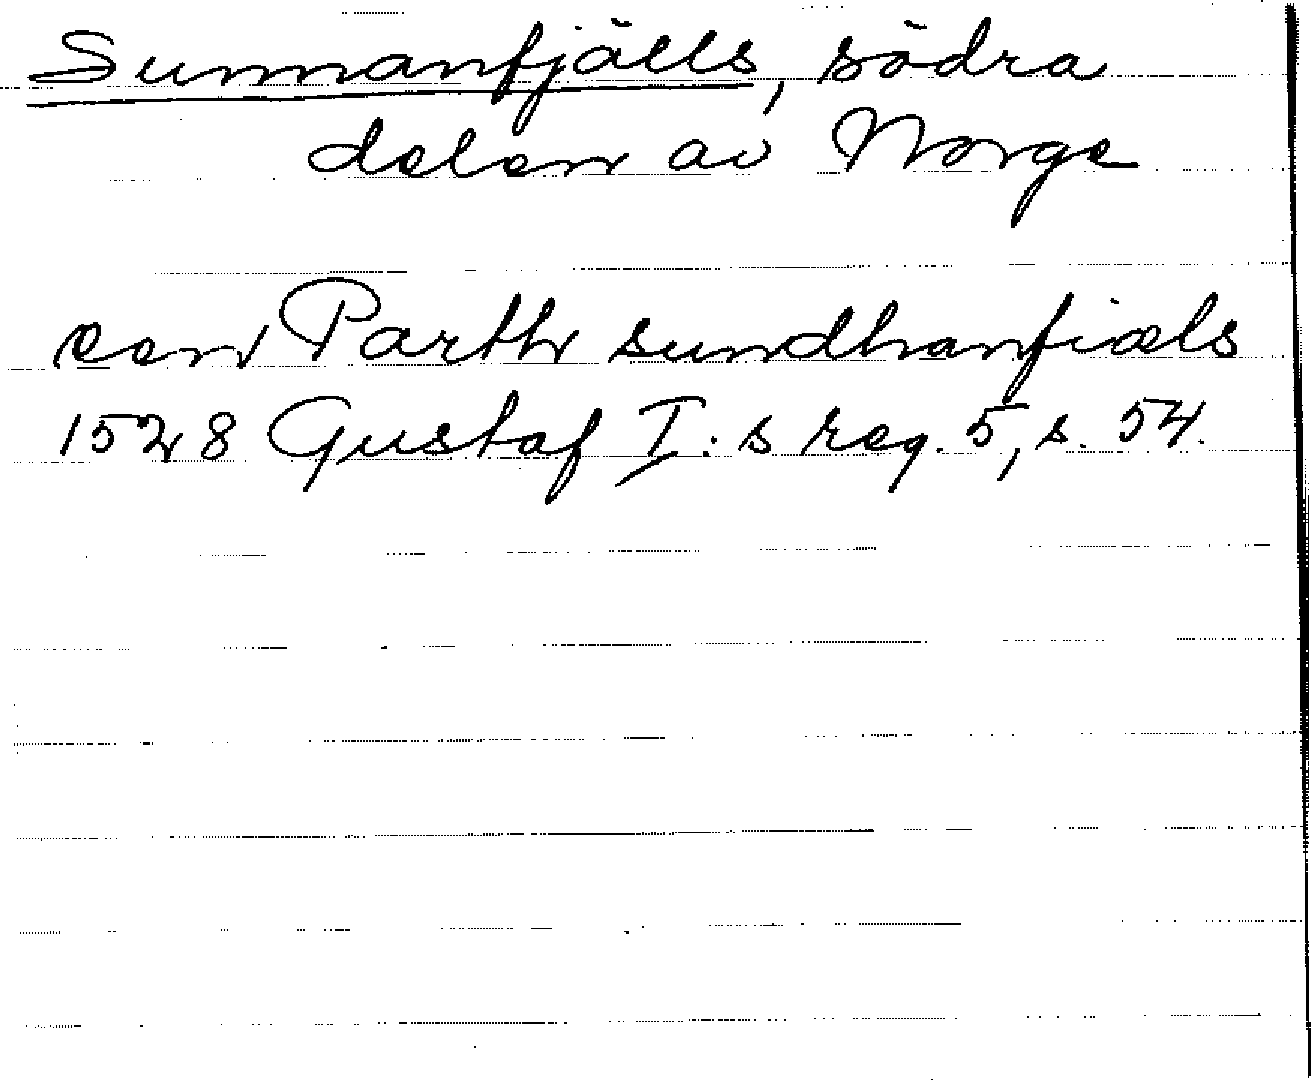 Sunnanfjälls, södra
delen av Norge
een Parth sundhanfiæls
1528 Gustaf I:s reg. 5, s. 54.